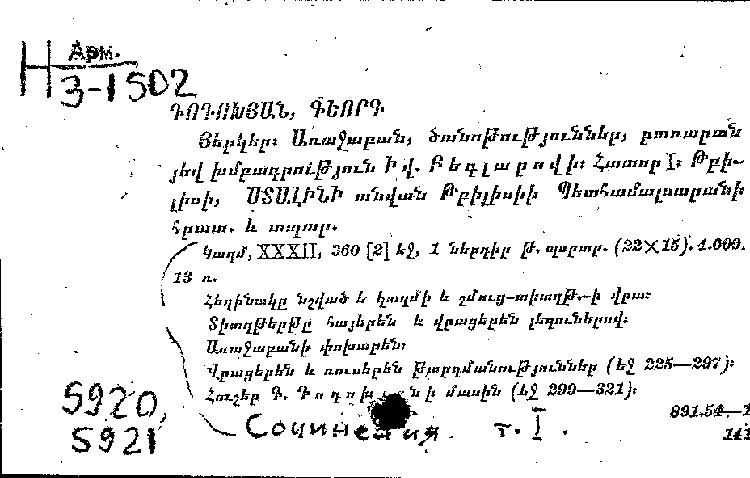 Арм.
Н 3-1502
ԴՈԴՈԽՅԱՆ, ԳԵՈՐԳ
Յերկեր: Առաջաբան, ծանոթություններ, բառարան
յեվ խմբագրություն Իվ. Բեգլարովի: Հատոր I: Թբի-
լիսի, ՍՏԱԼԻՆԻ անվան Թբիլիսիի Պետհամալսարանի
հրատ. և տպար.
Կազմ, XXXII, 360 [2] էջ, 1 ներդիր թ. պատր. (22×15). 1.000.
13 ռ.
Հեղինակը նշված և կազմի և շմուց-տիտղթ.-ի վրա:
Տիտղթերթը հայերեն և վրացերեն լեզուներով:
Առաջաբանի փոխարեն:
Վրացերեն և ռուսերեն թարգմանություններ (էջ 225—297):
Հուշեր Գ. ի մասին (էջ 299—321):
891.54—1
141
5920,
5921
Сочинения. т. I.